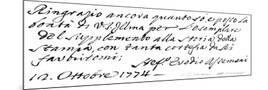 Ringrazio ancora quanto so, e posso la
bontà di V. S. Illma per l'esemplare
del Supplemento alla Storia della
Stampa, con tanta cortesia da lei
favoritomi;
Assemani
12. Ottobre 1774